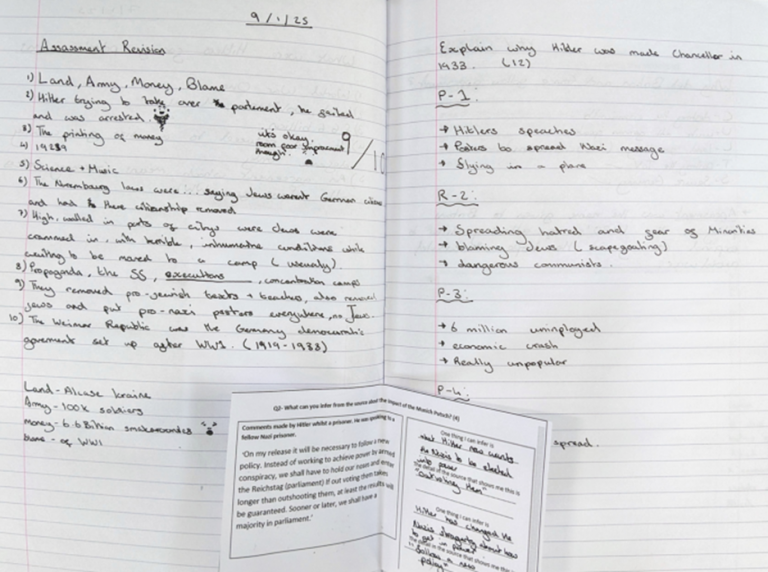 9/1/25
Assassment Revision
1) Land, Army, Money, Blame
2) Hitler trying to take over parlement, he failed
and was arrested.
3) The printing of money
4) 1928
it's okay.
room for improvement
though.
9/10
5) Science + Music
6) The Nurembourg laws were... saying Jews werent German
and had there citizenship removed
7) High, walled in parts of citys were Jews were
crammed in, with horrible, inhumane conditions while
waiting to be moved to a camp (usually).
8) Propoganda, the SS, , concentration camps
9) They removed pro-jewish + teaches, also
jews and put pro-nazi posters everywhere, no Jew
10) The Weimar Republic was the Germany democratic
goverment set up after WW1. (1919-1933)
Land-
Army- 100k soldiers
money- 6.6 Billion
blame - of WW1
Explain why Hitler was made Chancellor in
1933. (12)
P-1:
→ Hitlers speaches
→ Posters to spread Nazi message
→ flying in a plane
R-2:
→ Spreading hatred and fear of Minorities
→ blaming Jews (scapegoating)
→ dangerous communists.
P-3:
→ 6 million uninployed
→ economic crash
→ Really unpopular
P-4:
spread.
Q2- What can you infer from the source about the impact of the Munich Putsch? (4)
Comments made by Hitler whilst a prisoner. He was speaking to a
fellow Nazi prisoner.
'On my release it will be necessary to follow a new
policy. Instead of working to achieve power by armed
conspiracy, we shall have to hold our noses and enter
the Reichstag (parliament) If out voting them takes
longer than outshooting them, at least the results will
be guaranteed. Sooner or later, we shall have a
majority in parliament.'
One thing I can infer is
that Hitler now wants
the Nazis to be elected
into power
The detail in the source that shows me this is
"outvoting them"
One thing I can infer is
Hitler has changed the
Nazis about how
to get in power
The detail in the source that shows me this is
"follow a new
policy"